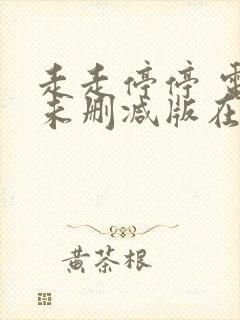 走走停停 電
未删减版在
黄茶根